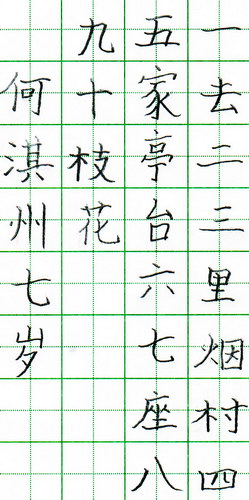 一去二三里烟村四
五家亭台六七座八
九十枝花
何淇州七岁